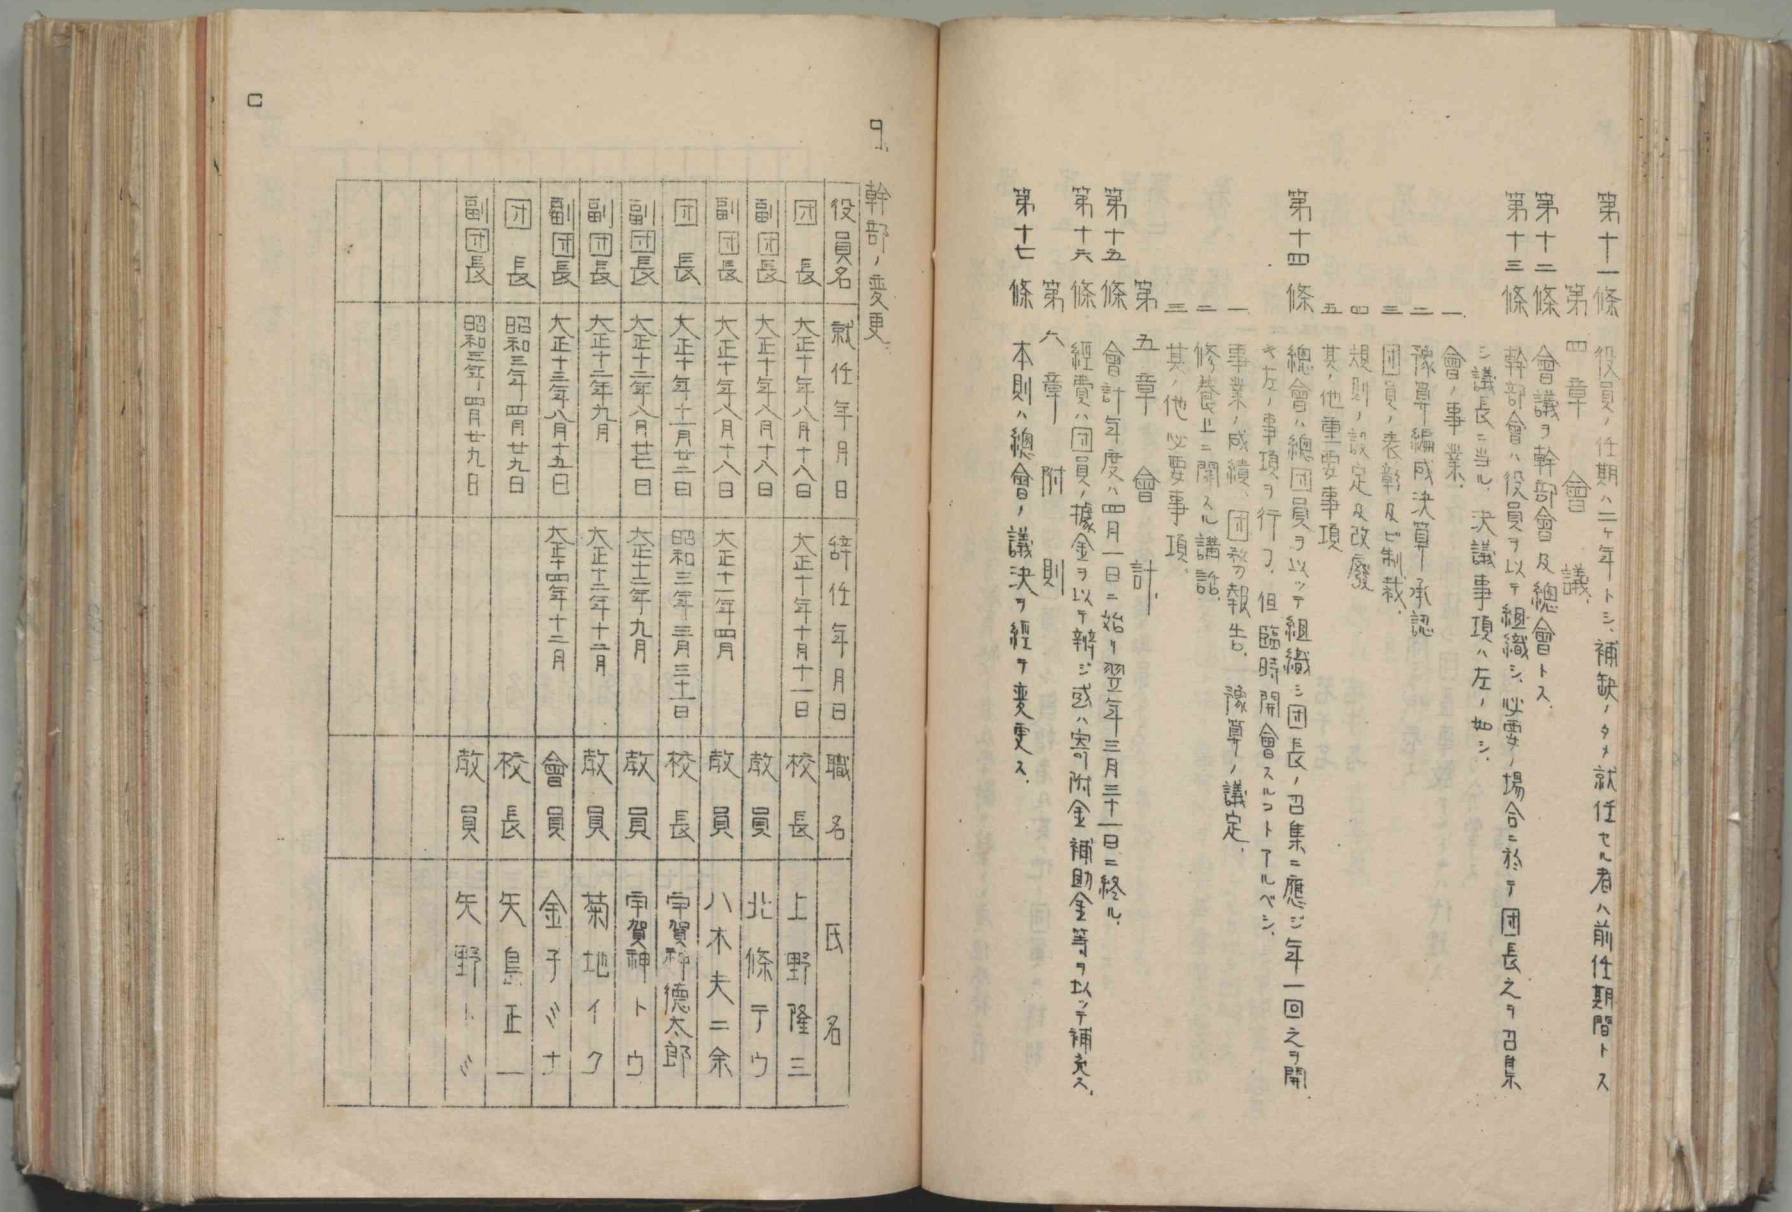 第十一條 役員ノ任期ハ二ヶ年トシ、補缺ノタメ就任セル者ハ前任期間トス
第四章 會議
第十二條 會議ヲ幹部會及總會トス.
第十三條 幹部會ハ役員ヲ以テ組織シ、必要ノ場合ニ於テ団長之ヲ召集
シ議長ニ当ル、決議事項ハ左ノ如シ.
一. 會ノ事業.
二 豫算編成決算承認
三 団員ノ表彰及ビ制裁.
四 規則ノ設定及改廢
五 其ノ他重要事項
第十四條 總會ハ總団員ヲ以ッテ組織シ団長ノ召集ニ應ジ年一回之ヲ開
キ左ノ事項ヲ行フ、但臨時開會スルコトアルベシ.
一 事業ノ成績、団務報告、豫算ノ議定.
二 修養上ニ関スル講話.
三 其ノ他必要事項.
第五章 會計.
第十五條 會計年度ハ四月一日ニ始リ翌年三月三十一日ニ終ル.
第十六條 經費ハ団員ノ據金ヲ以テ辨ジ或ハ寄附金補助金等ヲ以ッテ補充ス.
第六章 附則
第十七條 本則ハ總會ノ議決ヲ經テ変更ス.
9. 幹部ノ変更.
役員名 就任年月日 辞任年月日 職名 氏名
団長 大正十年八月十八日 大正十年十月十一日 校長 上野隆三
副団長 大正十年八月十八日 教員 北條テウ
副団長 大正十年八月十八日 大正十一年四月 教員 八木夫ニ余
団長 大正十年十一月廿二日 昭和三年三月三十一日 校長 宇賀神德太郎
副団長 大正十二年八月廿七日 大正十二年九月 教員 宇賀神トウ
副団長 大正十二年九月 大正十二年十二月 教員 菊地イク
副団長 大正十三年八月十五日 大正十四年十二月 會員 金子ミナ
団長 昭和三年四月廿九日 校長 矢島正一
副団長 昭和三年四月廿九日 教員 矢野トミ